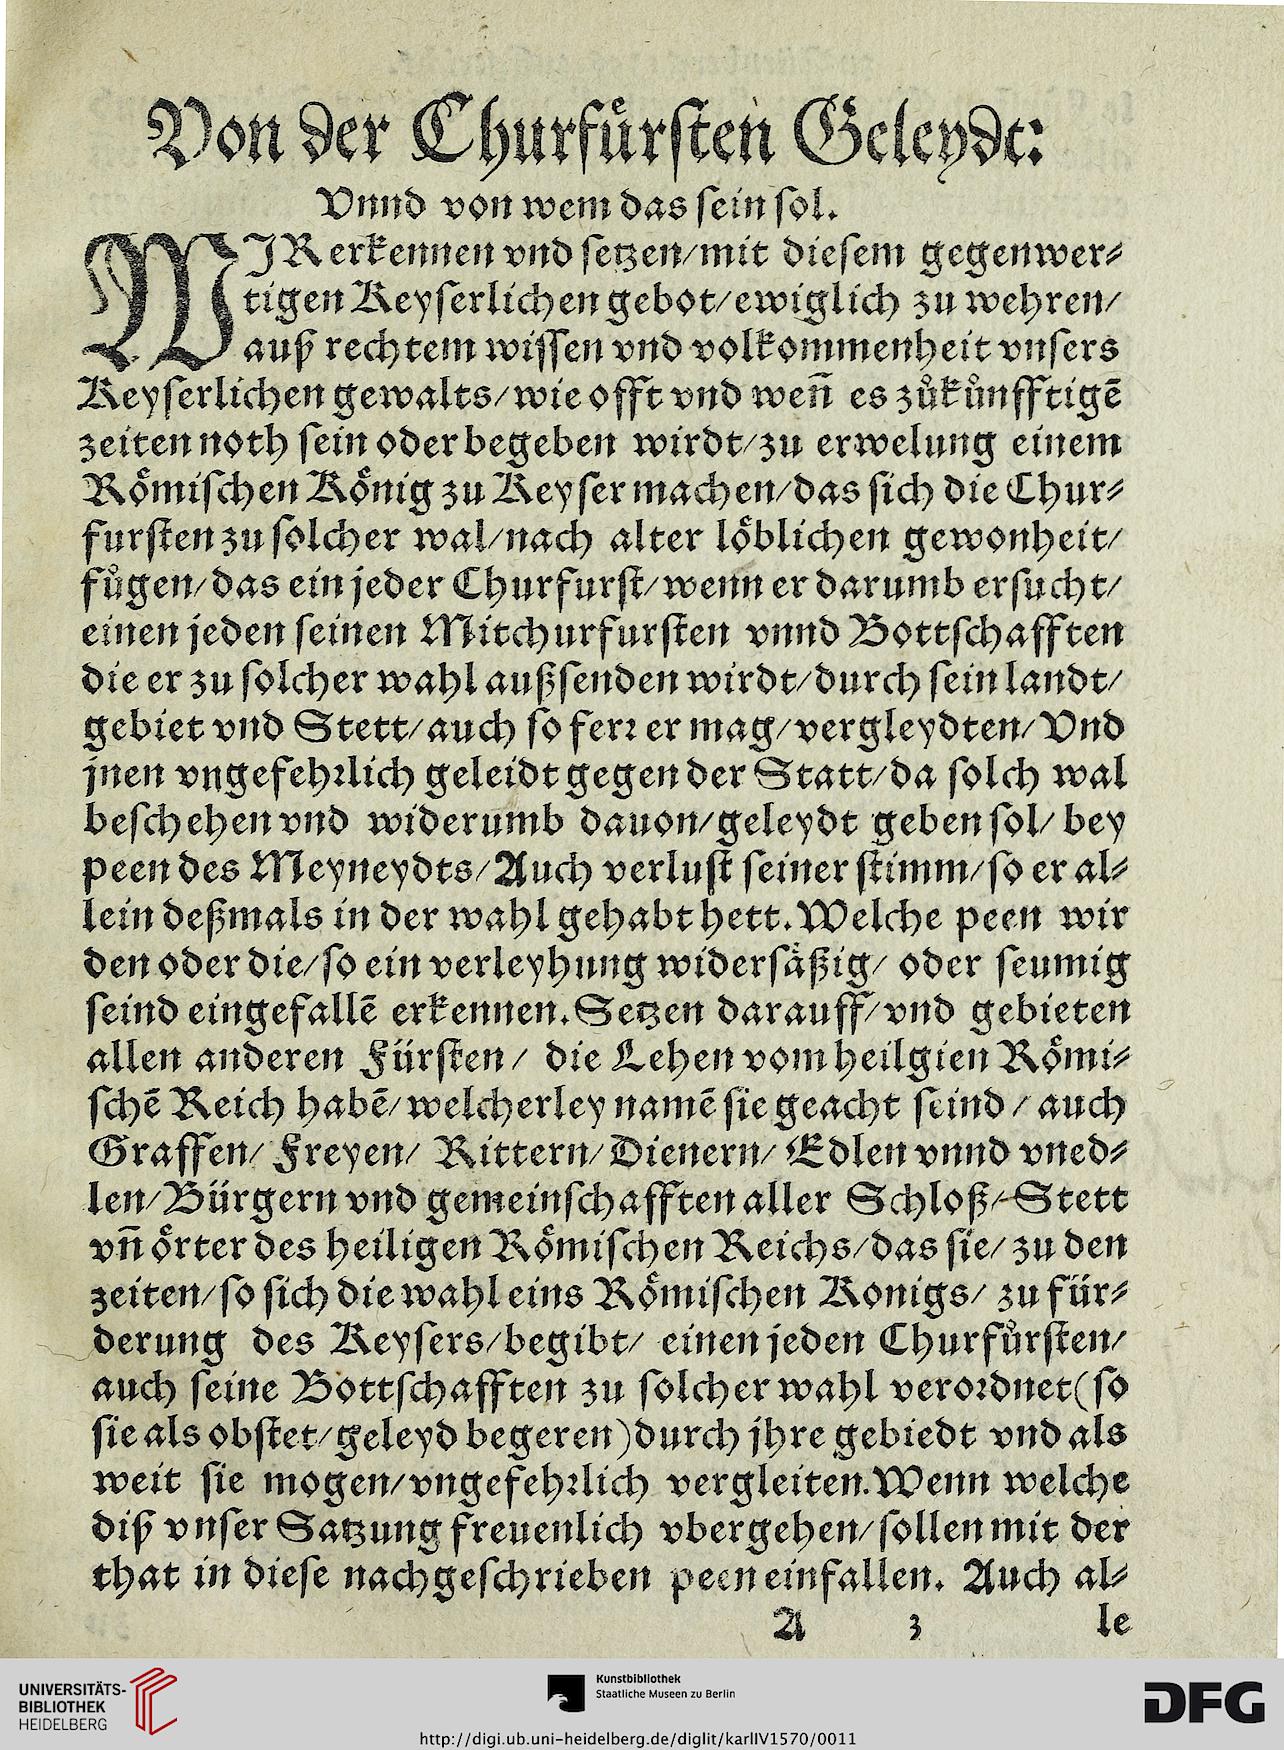 Von der Churfuͤrsten Geleydt:
Vnnd von wem das sein sol.
WJR erkennen vnd setzen/mit diesem gegenwer⸗
tigen Keyserlichen gebot/ewiglich zu wehren/
auß rechtem wissen vnd volkommenheit vnsers
Keyserlichen gewalts/wie offt vnd weñ es zuͦkuͤnfftigẽ
zeiten noth sein oder begeben wirdt/zu erwelung einem
Roͤmischen Koͤnig zu Keyser machen/das sich die Chur⸗
fursten zu solcher wal/nach alter loͤblichen gewonheit/
fuͤgen/das ein jeder Churfurst/wenn er darumb ersucht/
einen jeden seinen Mitchurfursten vnnd Bottschafften
die er zu solcher wahl außsenden wirdt/durch sein landt/
gebiet vnd Stett/auch so ferꝛ er mag/vergleydten/Vnd
jnen vngefehꝛlich geleidt gegen der Statt/da solch wal
beschehen vnd widerumb dauon/geleydt geben sol/ bey
peen des Meyneydts/Auch verlust seiner stimm/so er al⸗
lein deßmals in der wahl gehabt hett. Welche peen wir
den oder die/so ein verleyhung widersaͤßig/ oder seumig
seind eingefallẽ erkennen. Setzen darauff/vnd gebieten
allen anderen Fürsten/ die Lehen vom heilgien Roͤmi⸗
schẽ Reich habẽ/welcherley namẽ sie geacht seind/ auch
Graffen/ Freyen/ Rittern/Dienern/ Edlen vnnd vned⸗
len/Bürgern vnd gemeinschafften aller Schloß/Stett
vñ oͤrter des heiligen Roͤmischen Reichs/das sie/ zu den
zeiten/so sich die wahl eins Roͤmischen Konigs/ zu für⸗
derung des Keysers/begibt/ einen jeden Churfuͤrsten/
auch seine Bottschafften zu solcher wahl veroꝛdnet(so
sie als obstet/geleyd begeren)durch jhre gebiedt vnd als
weit sie mogen/vngefehꝛlich vergleiten. Wenn welche
diß vnser Satzung freuenlich vbergehen/sollen mit der
that in diese nachgeschrieben peen einfallen. Auch al⸗
A 3 le
UNIVERSITÄTS-
BIBLIOTHEK
HEIDELBERG
Kunstbibliothek
Staatliche Museen zu Berlin
DFG
http://digi.ub.uni-heidelberg.de/diglit/karlIV1570/0011